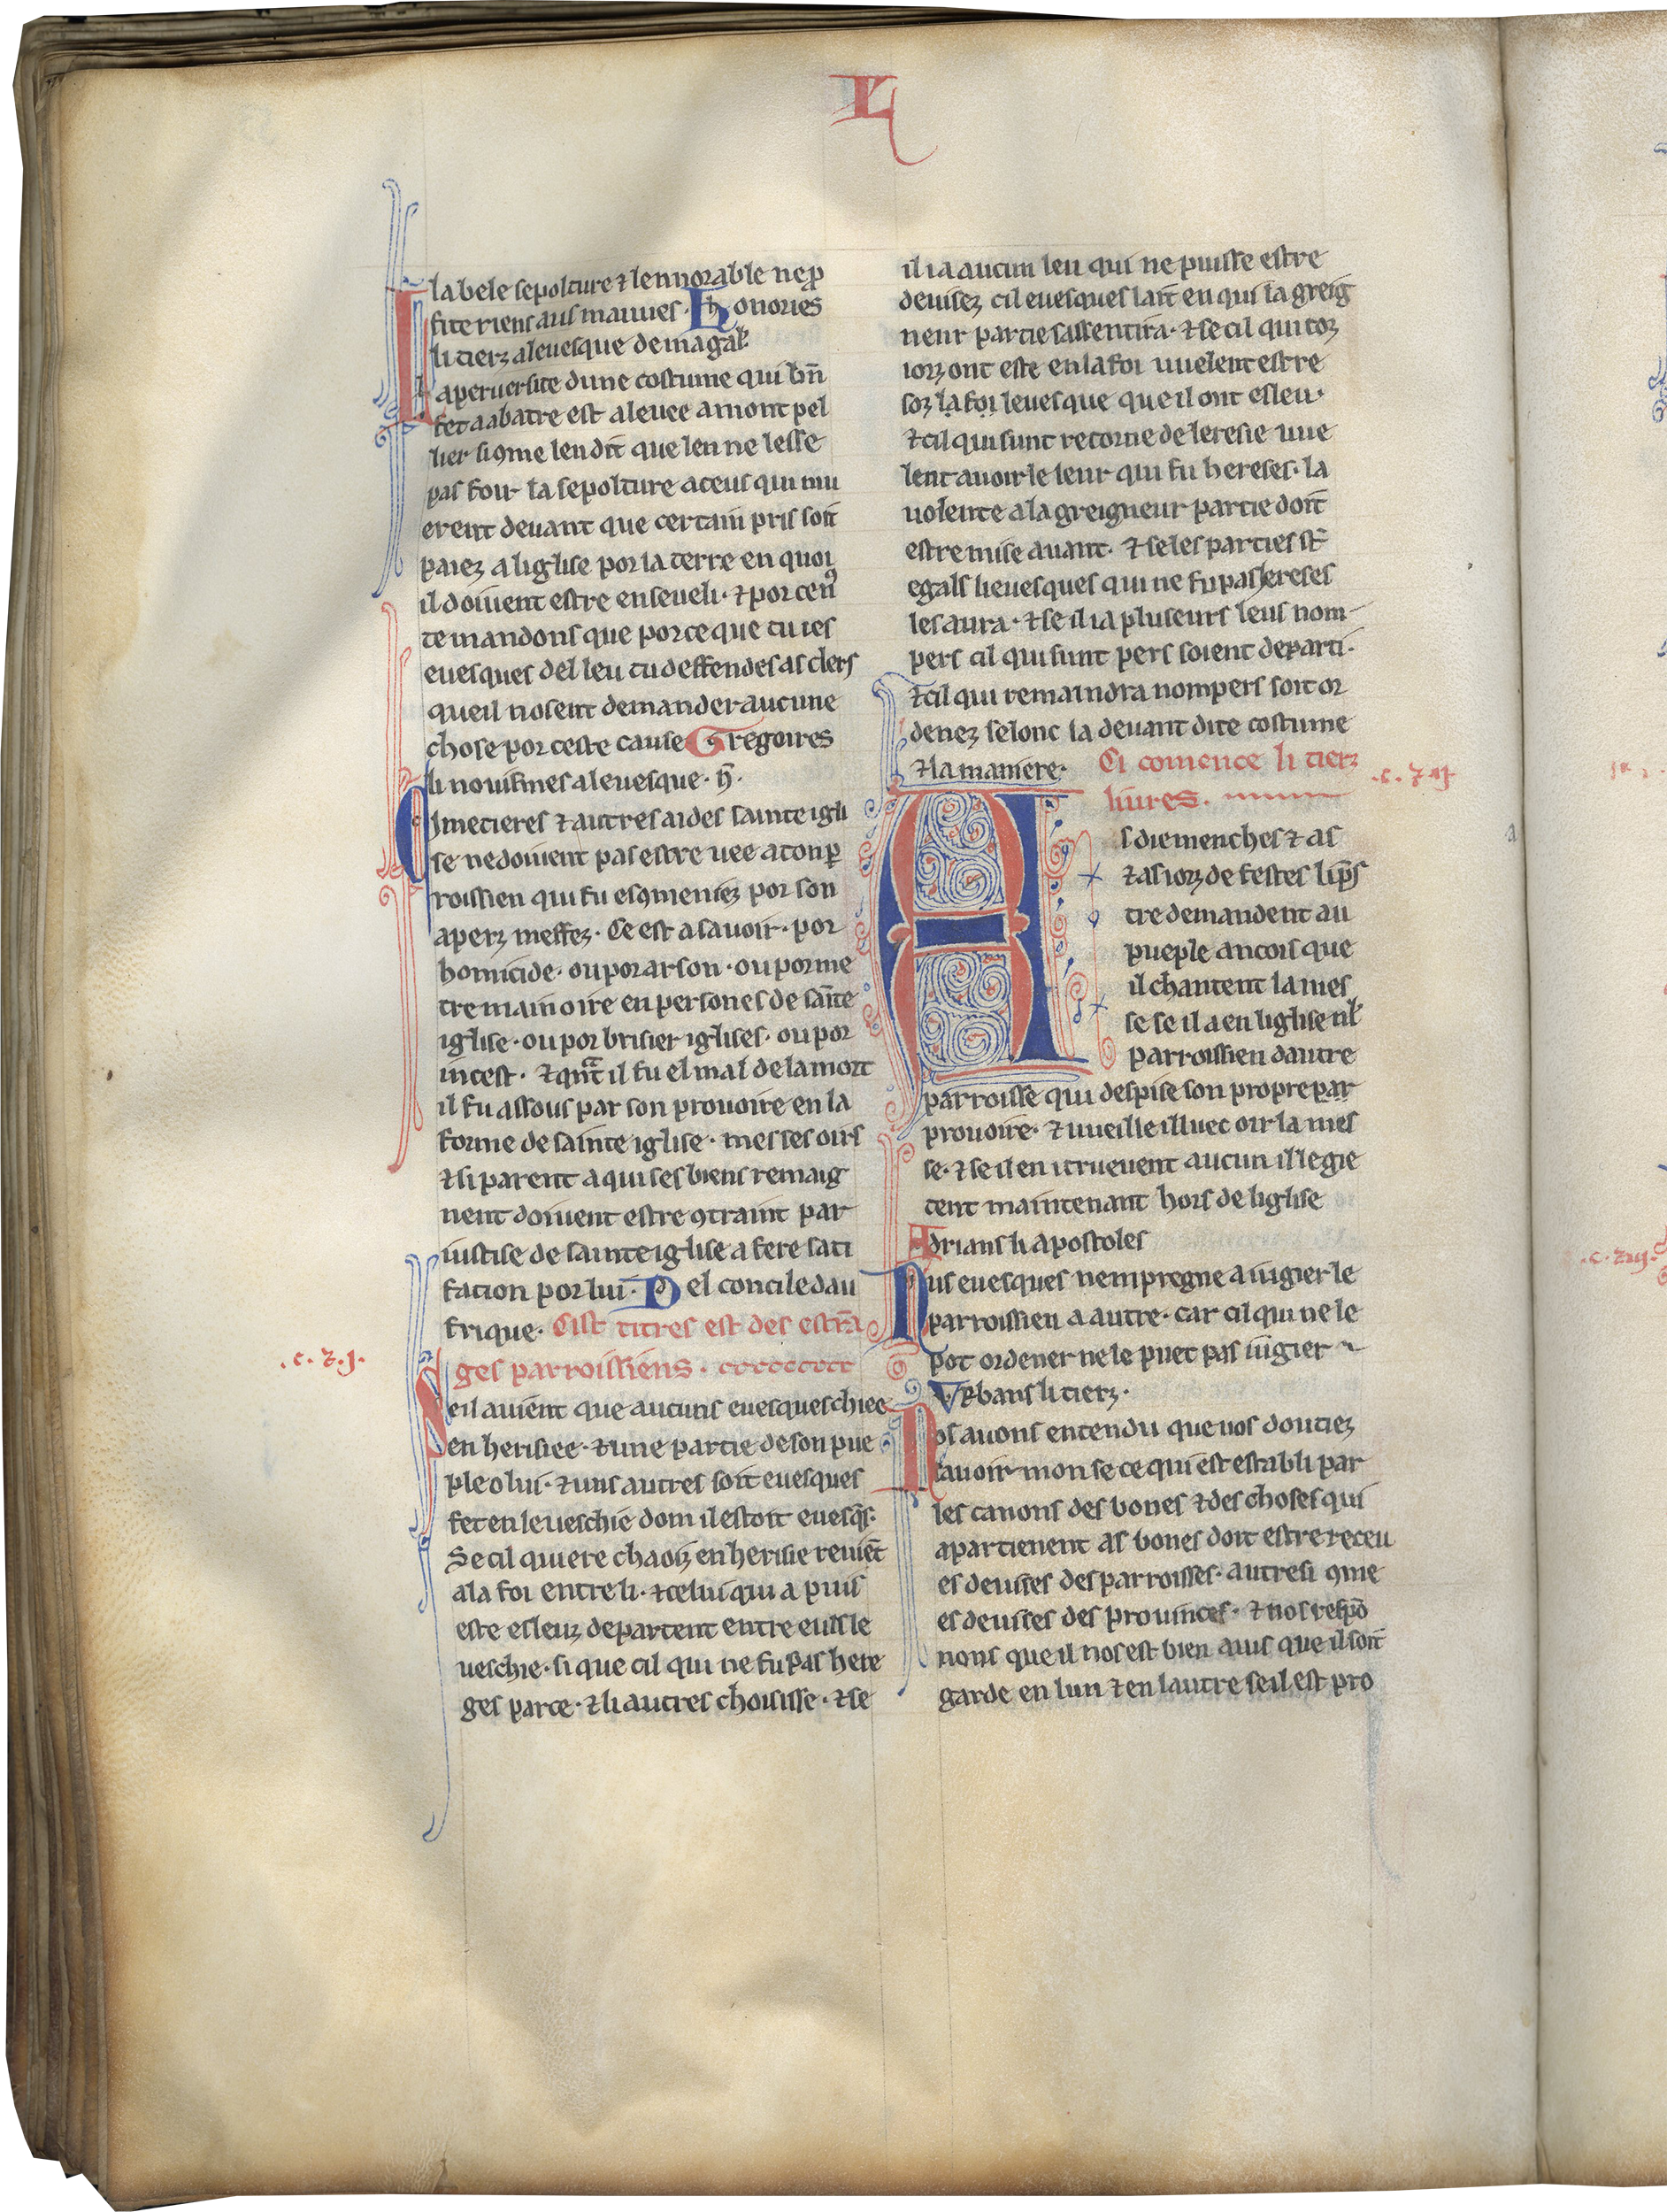 L
la bele sepolture ⁊ lennorable ne ꝓ
fite riens aus mauues · Honories
li tierz a leuesque de magal᷑.
La peruersite dune costume qui bn̄
fet a abatre est aleuee a mont pel
lier si ꝯme len dit que len ne lesse
pas fouir la sepolture a ceus qui mu
erent deuant que certain pris soit
paiez a liglise por la terre en quoi
il doiuent estre enseueli · ⁊ por ce nꝰ
te mandons que por ce que tu ies
euesques del leu tu deffendes as clers
que il nosent demander aucune
chose por ceste cause Gregoires
li nouismes a leuesque · h̄ ·
Cimetieres ⁊ autres aides sainte igli
se ne doiuent pas estre uee a ton ꝑ
roissien qui fu esꝯmeniez por son
aperz meffez · Ce est a sauoir · por
homicide · ou por arson · ou por me
tre main oire en persones de saīte
iglise · ou por brisier iglises · ou por
incest · ⁊ qnͣt il fu el mal de la mort
il fu assous par son prouoire en la
forme de sainte iglise · mes ses oirs
⁊ si parent a qui ses biens remaig
nent doiuent estre ꝯtraint par
iustise de sainte iglise a fere sati
facion por lui · Del concile dau
frique · Cist titres est des estrā
ges parroissiens ·
.c.⁊.j.
Se il auient que aucuns euesques chiee
en herisiee · ⁊ une partie de son pue
ple o lui · ⁊ uns autres soit euesques
fet en leueschie dom il estoit euesq̄s ·
Se cil qui ere chaoiz en herisie reuiēt
a la foi entre li · ⁊ celui qui a puis
este esleuz departent entre eus le
ueschie · si que cil qui ne fu pas here
ges parte · ⁊ li autres choisisse · ⁊ se
il i a aucun leu qui ne puisse estre
deuisez cil euesques lait en qui la greig
neur partie sassentira · ⁊ se cil qui toz
iorz ont este en la foi uuelent estre
soz la foi leuesque que il ont esleu ·
⁊ cil qui sunt retorne de leresie uue
lent auoir le leur qui fu hereses · la
uolente a la greigneur partie doit
estre mise auant · ⁊ se les parties st̄
egals li euesques qui ne fu pas hereses
les aura · ⁊ se il i a pluseurs leus nom
pers cil qui sunt pers soient departi ·
⁊ cil qui remaindra nompers soit or
denez selonc la deuant dite costume
⁊ la maniere · Ci comence li tierz
liures ·
.c.⁊.ij.
As diemenches ⁊ as
⁊ as iorz de festes li p̄s
tre demandent au
pueple ancois que
il chantent la mes
se se il a en liglise nl᷑
parroissien dautre
parroisse qui despise son propre par
prouoire · ⁊ uueille illuec oir la mes
se · ⁊ se il en i truevent aucun il le gie
tent maintenant hors de liglise
Adrians li apostoles
Nus euesques nempregne a iugier le
parroissien a autre · car cil qui ne le
pot ordener ne le puet pas iugier
Vrbans li tierz ·
Nos auons entendu que uos doutiez
sauoir mon se ce qui est establi par
les canons des bones ⁊ des choses qui
apartienent as bones doit estre receu
es deuises des parroisses · autresi ꝯme
es deuises des prouinces · ⁊ nos respō
nons que il nos est bien auis que il soit
garde en lun ⁊ en lautre se il est pro